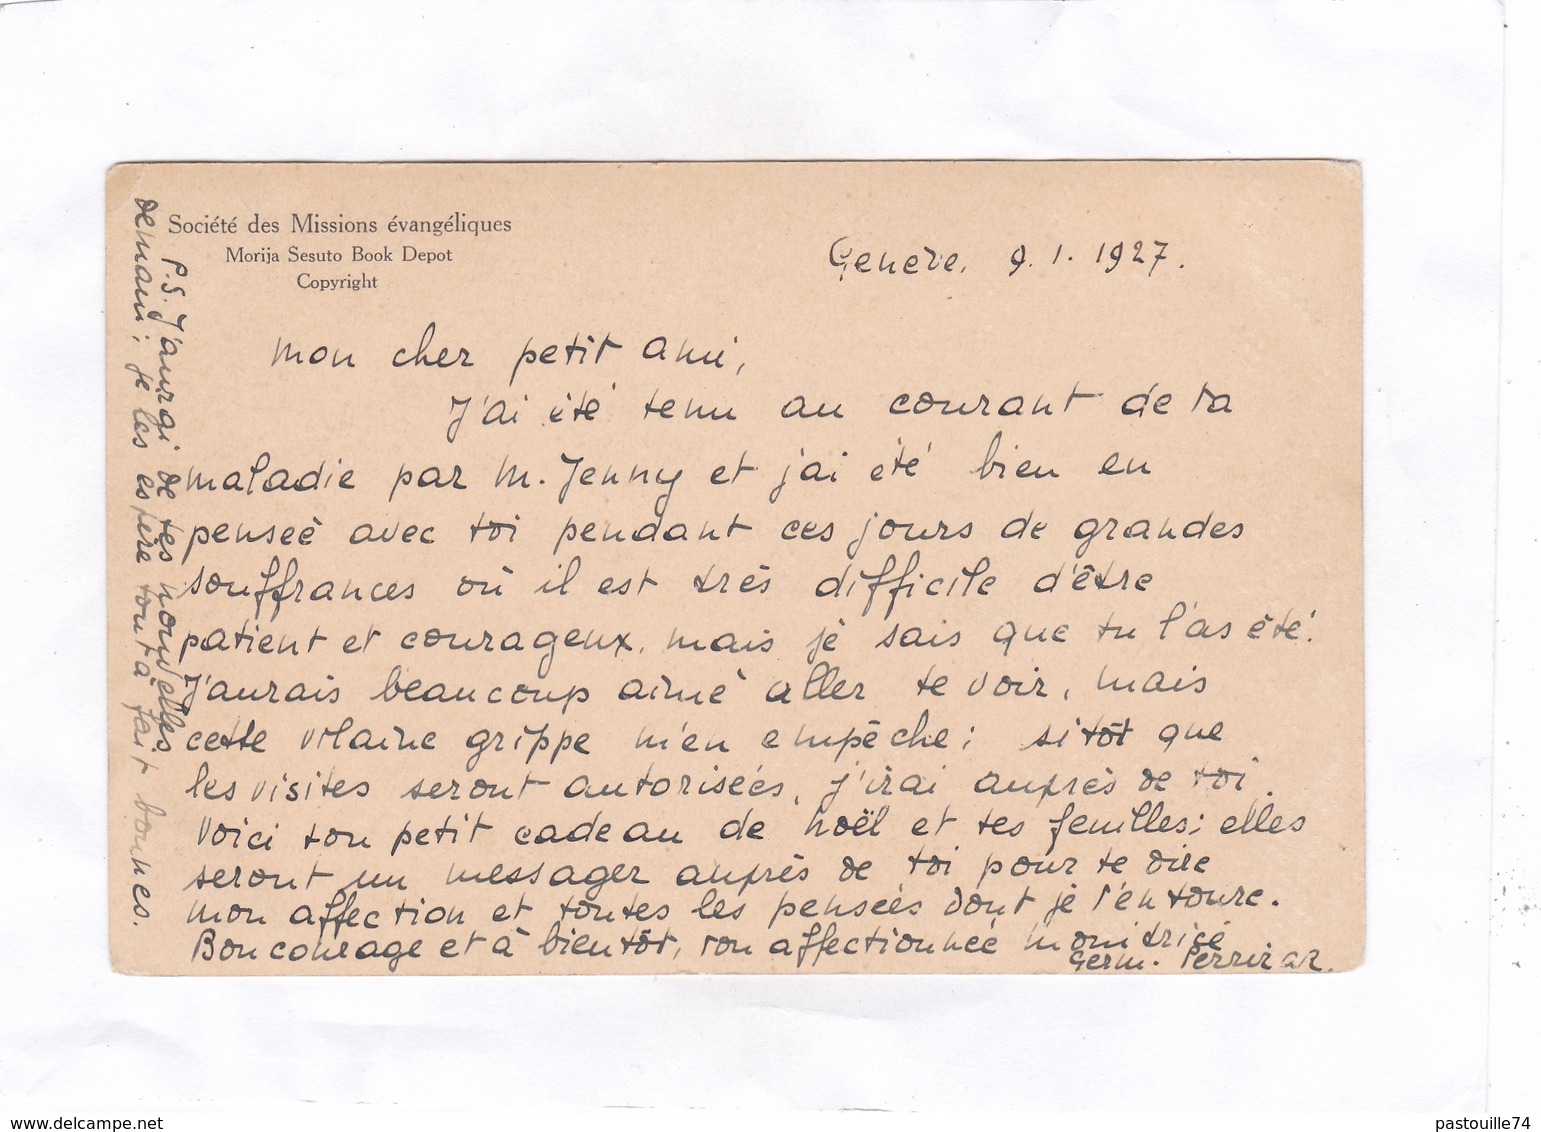 Société des Missions évangéliques
Morija Sesuto Book Depot
Copyright
Genève. 9.1.1927.
Mon cher petit ami,
J'ai été tenu au courant de ta
maladie par M. Jenny et j'ai été bien en
pensée avec toi pendant ces jours de grandes
souffrances où il est très difficile d'être
patient et courageux, mais je sais que tu l'as été.
J'aurais beaucoup aimé aller te voir, mais
cette vilaine grippe m'en empêche; sitôt que
les visites seront autorisées, j'irai auprès de toi.
Voici ton petit cadeau de Noël et tes feuilles; elles
seront un messager auprès de toi pour te dire
mon affection et toutes les pensées dont je t'entoure.
Bon courage et à bientôt, ton affectionnée monitrice
Germ.
P.S. J'aurai de tes nouvelles
demain; je les espère tout à fait bonnes.
pastouille74
delcampe.net